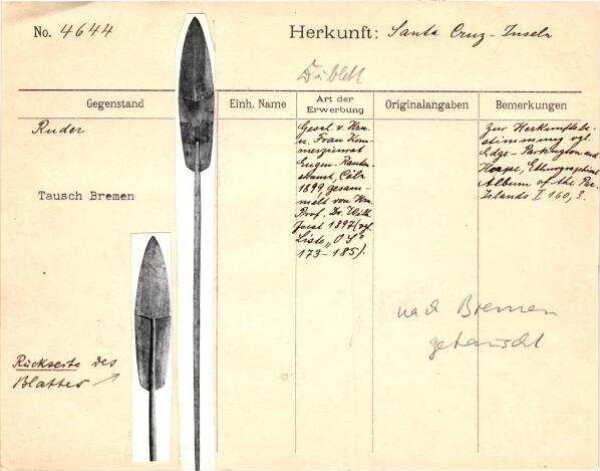 No. 4644
Herkunft: Santa Cruz-Inseln
Dublett
Gegenstand
Einh. Name
Art der Erwerbung
Originalangaben
Bemerkungen
Ruder
Tausch Bremen
Rückseite des
Blattes
Gesch. v. Hrn.
u. Frau Kom-
merzienrat
Eugen Rauten-
strauch, Cöln
1899, gesam-
melt von Hrn.
Prof. Dr. Wilh.
Joest 1897 (vgl.
Liste "OS"
173-185).
nach Bremen
getauscht
Zur Herkunftsbe-
stimmung vgl.
Edge-Partington and
Heape, Ethnographical
Album of the Pac.
Islands I 160, 3.